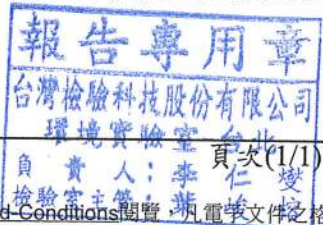 報告專用章
台灣檢驗科技股份有限公司
環境實驗室 台北
頁次(1/1)
負責人：李
檢驗室主管：葉
d-Conditions閱覽，凡電子文件之格